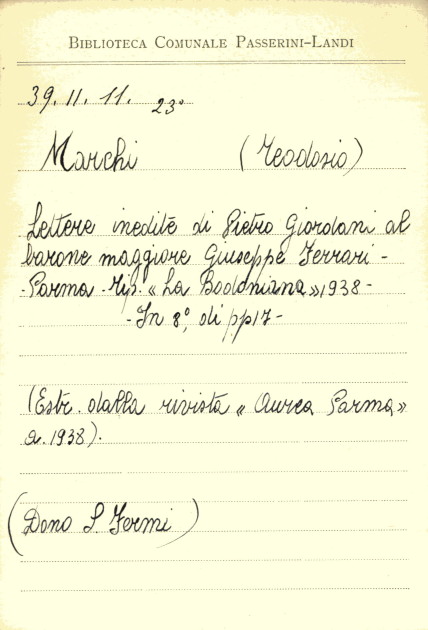 BIBLIOTECA COMUNALE PASSERINI-LANDI
39. II. 11. 23°
Marchi (Teodosio)
Lettere inedite di Pietro Giordani al
barone maggiore Giuseppe Ferrari -
- Parma - Tip. « La Bodoniana » 1938 -
- In 8°, di pp 17 -
(Estr. dalla rivista « Aurea Parma »
a. 1938).
(Dono S. Fermi)